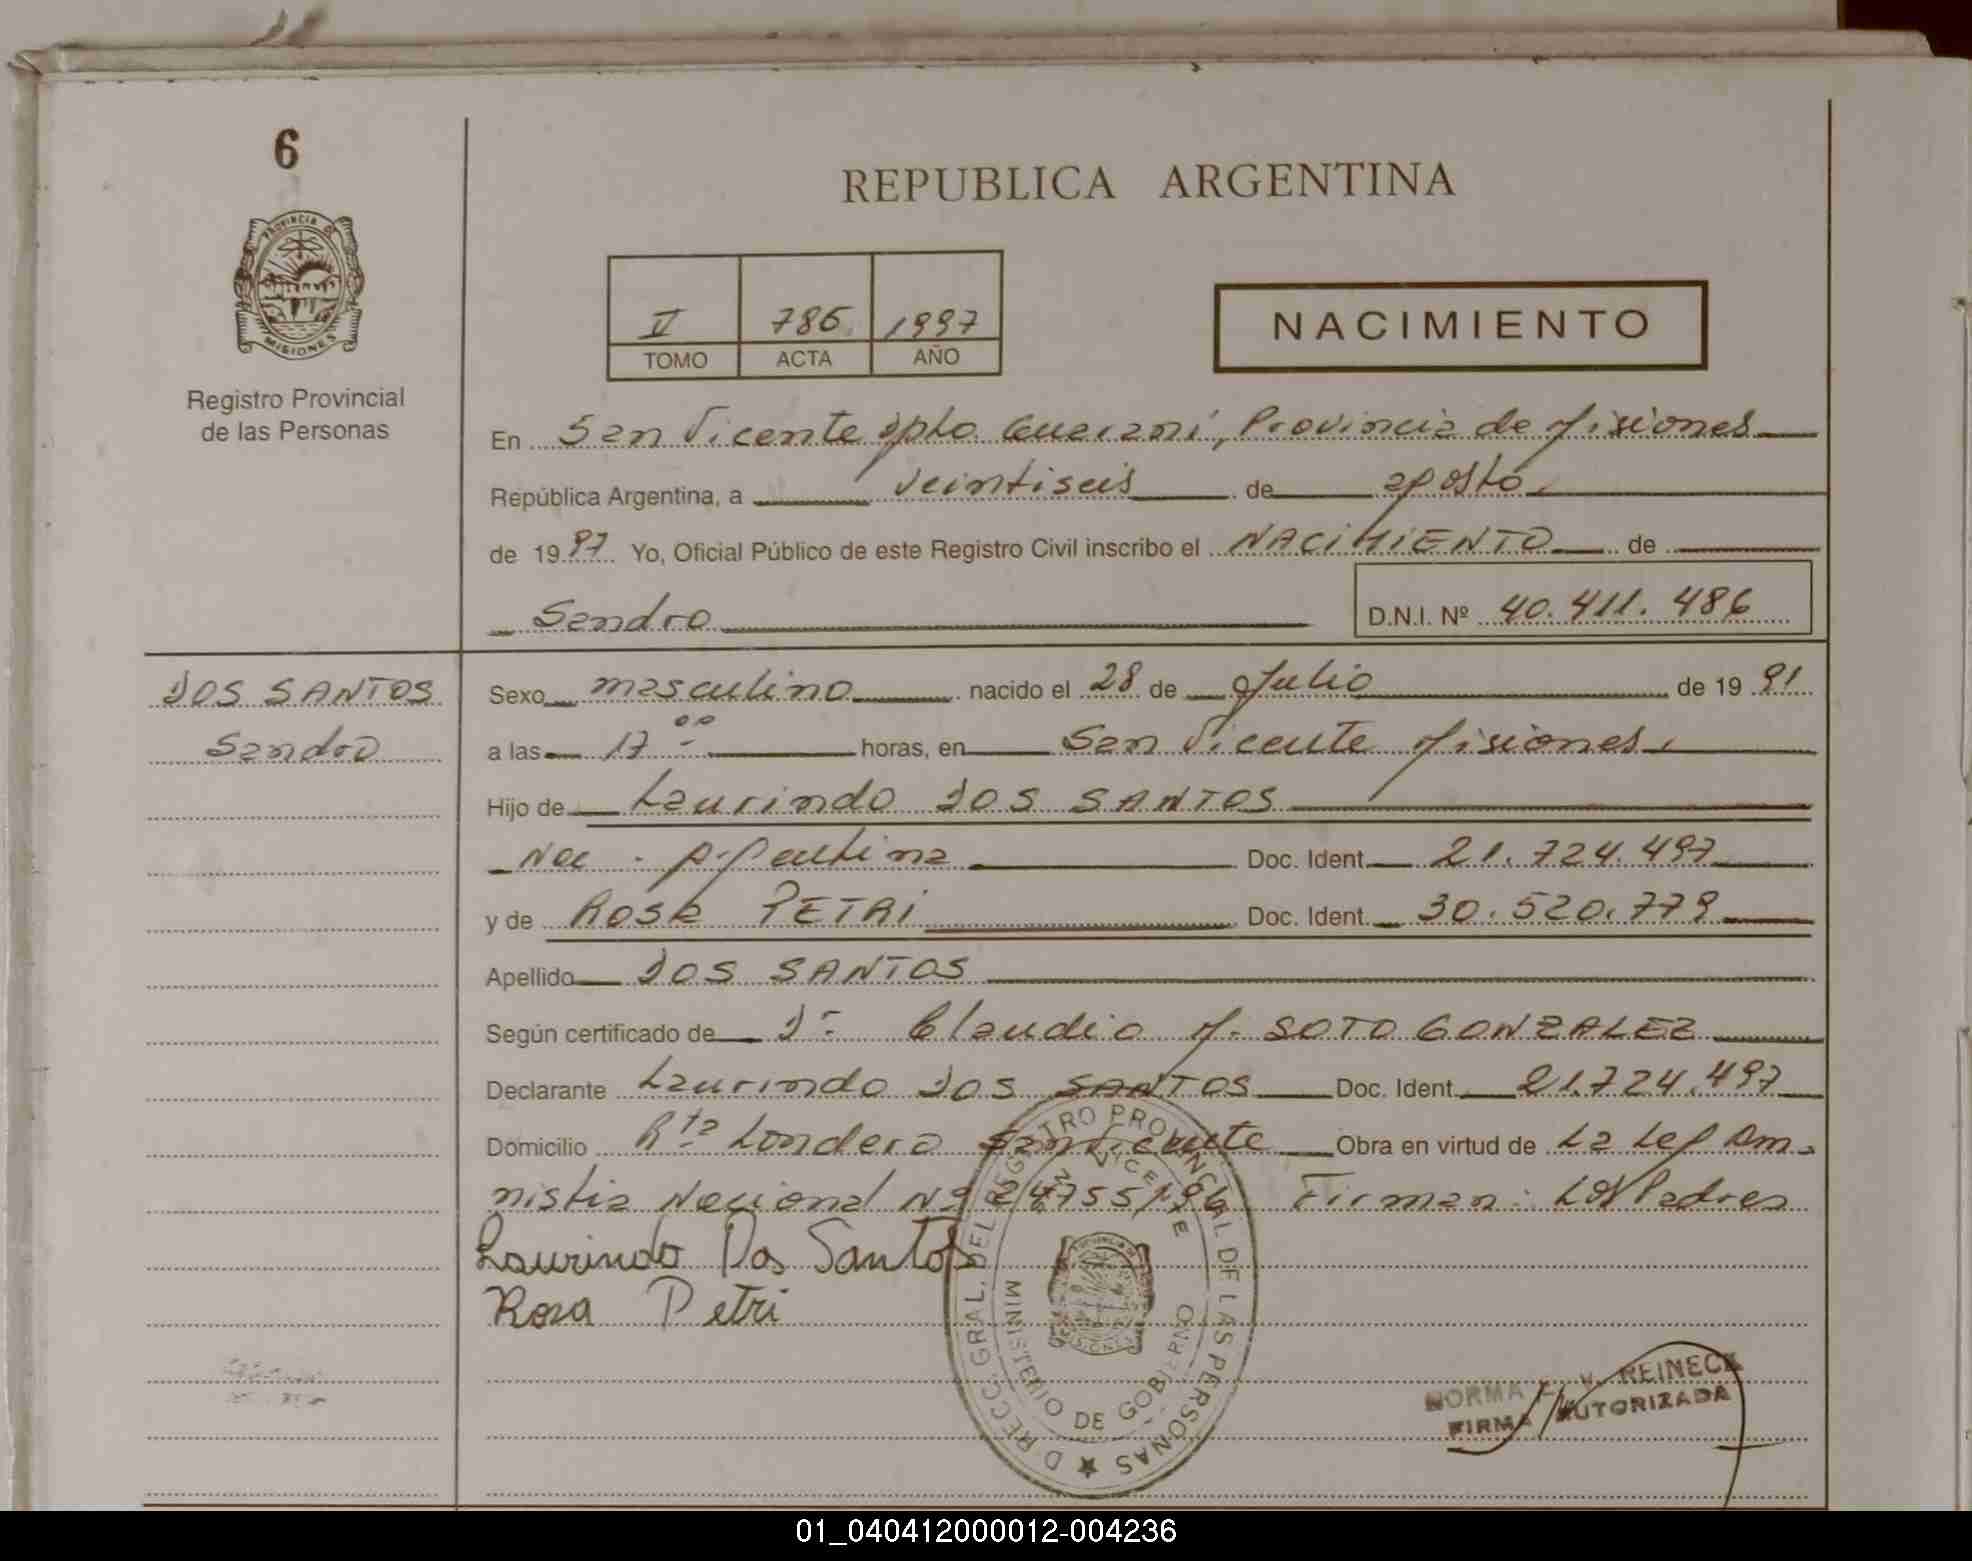 6
PROVINCIA DE
MISIONES
Registro Provincial
de las Personas
REPUBLICA ARGENTINA
V 786 1997
TOMO ACTA AÑO
NACIMIENTO
En San Vicente Dpto. Guaraní, Provincia de Misiones
República Argentina, a veintiseis de agosto
de 1997 Yo, Oficial Público de este Registro Civil inscribo el NACIMIENTO de
Sandro D.N.I. Nº 40.411.486
DOS SANTOS
Sandro
Sexo masculino nacido el 28 de Julio de 1991
a las 17 ºº horas, en San Vicente Misiones.
Hijo de Laurindo DOS SANTOS
Nac. Argentina Doc. Ident. 21.724.497
y de Rosa PETRI Doc. Ident. 30.520.779
Apellido DOS SANTOS
Según certificado de Dr. Claudio M. SOTO GONZALEZ
Declarante Laurindo DOS SANTOS Doc. Ident. 21.724.497
Domicilio Rta Londero San Vicente Obra en virtud de La Ley Am-
nistia Nacional Nº 24755/96 Firman: Los Padres
Laurindo Dos Santos
Rosa Petri
DIRECC. GRAL. DEL REGISTRO PROVINCIAL DE LAS PERSONAS
SAN VICENTE
MINISTERIO DE GOBIERNO
NORMA REINECK
FIRMA AUTORIZADA
01_040412000012-004236